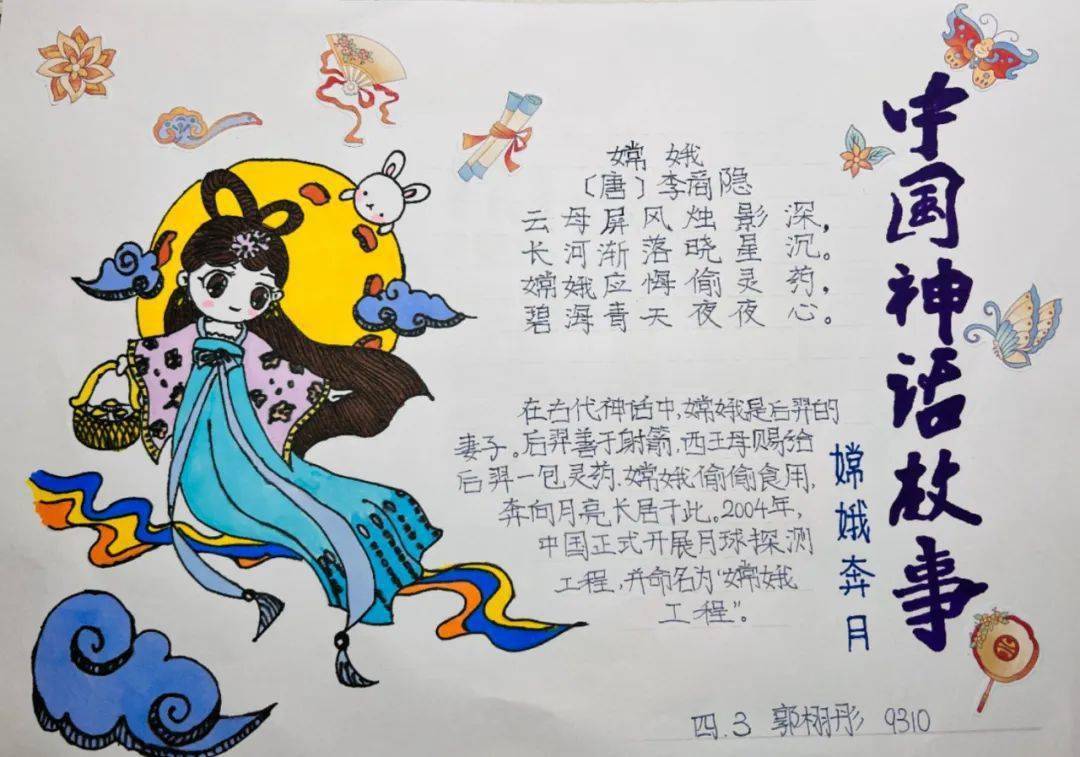 中国神话故事
嫦娥奔月
嫦娥
〔唐〕李商隐
云母屏风烛影深，
长河渐落晓星沉。
嫦娥应悔偷灵药，
碧海青天夜夜心。
在古代神话中，嫦娥是后羿的
妻子。后羿善于射箭，西王母赐给
后羿一包灵药，嫦娥偷偷食用，
奔向月亮长居于此。2004年，
中国正式开展月球探测
工程，并命名为“嫦娥
工程”。
四.3 郭栩彤 9310